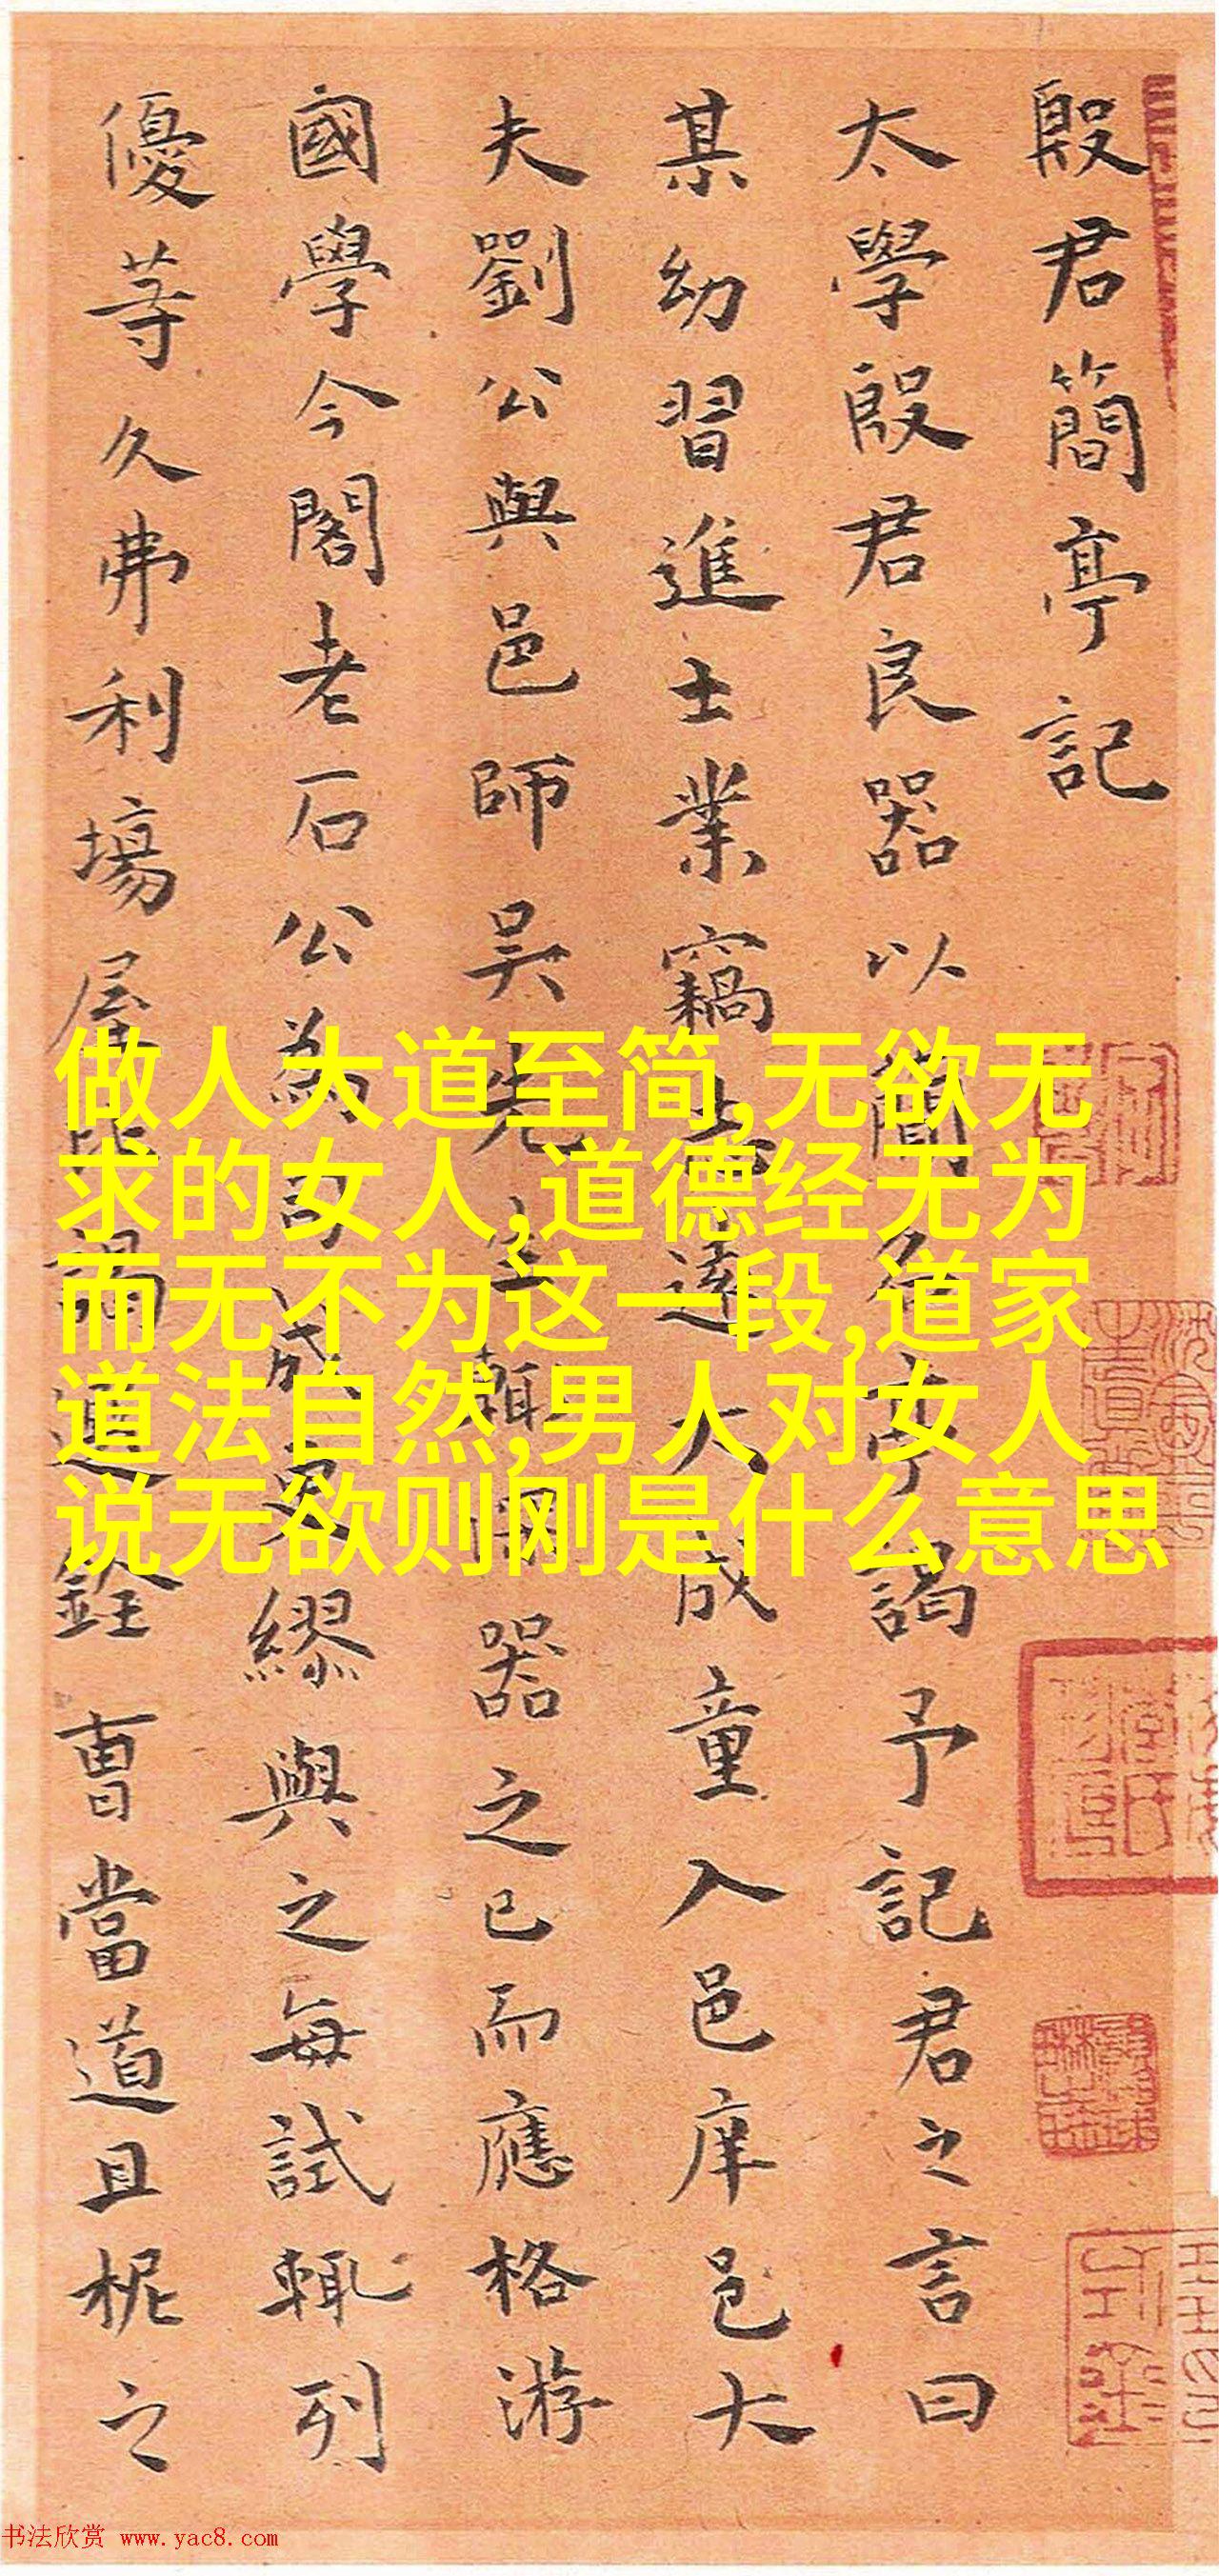 殷君簡亭記
太學殷君良器以簡名亭謁予記君之言曰
某幼習進士業竊志遠大成童入邑庠邑大
夫劉公與邑師吳先生輙器之已而應格游
國學今閣老石公為司成更繆與之每試輙列
優等久弗利場屋比謁選銓曹當道且柅之
做人大道至简,无欲无
求的女人,道德经无为
而无不为这一段,道家
道法自然,男人对女人
说无欲则刚是什么意思
书法欣赏 www.yac8.com